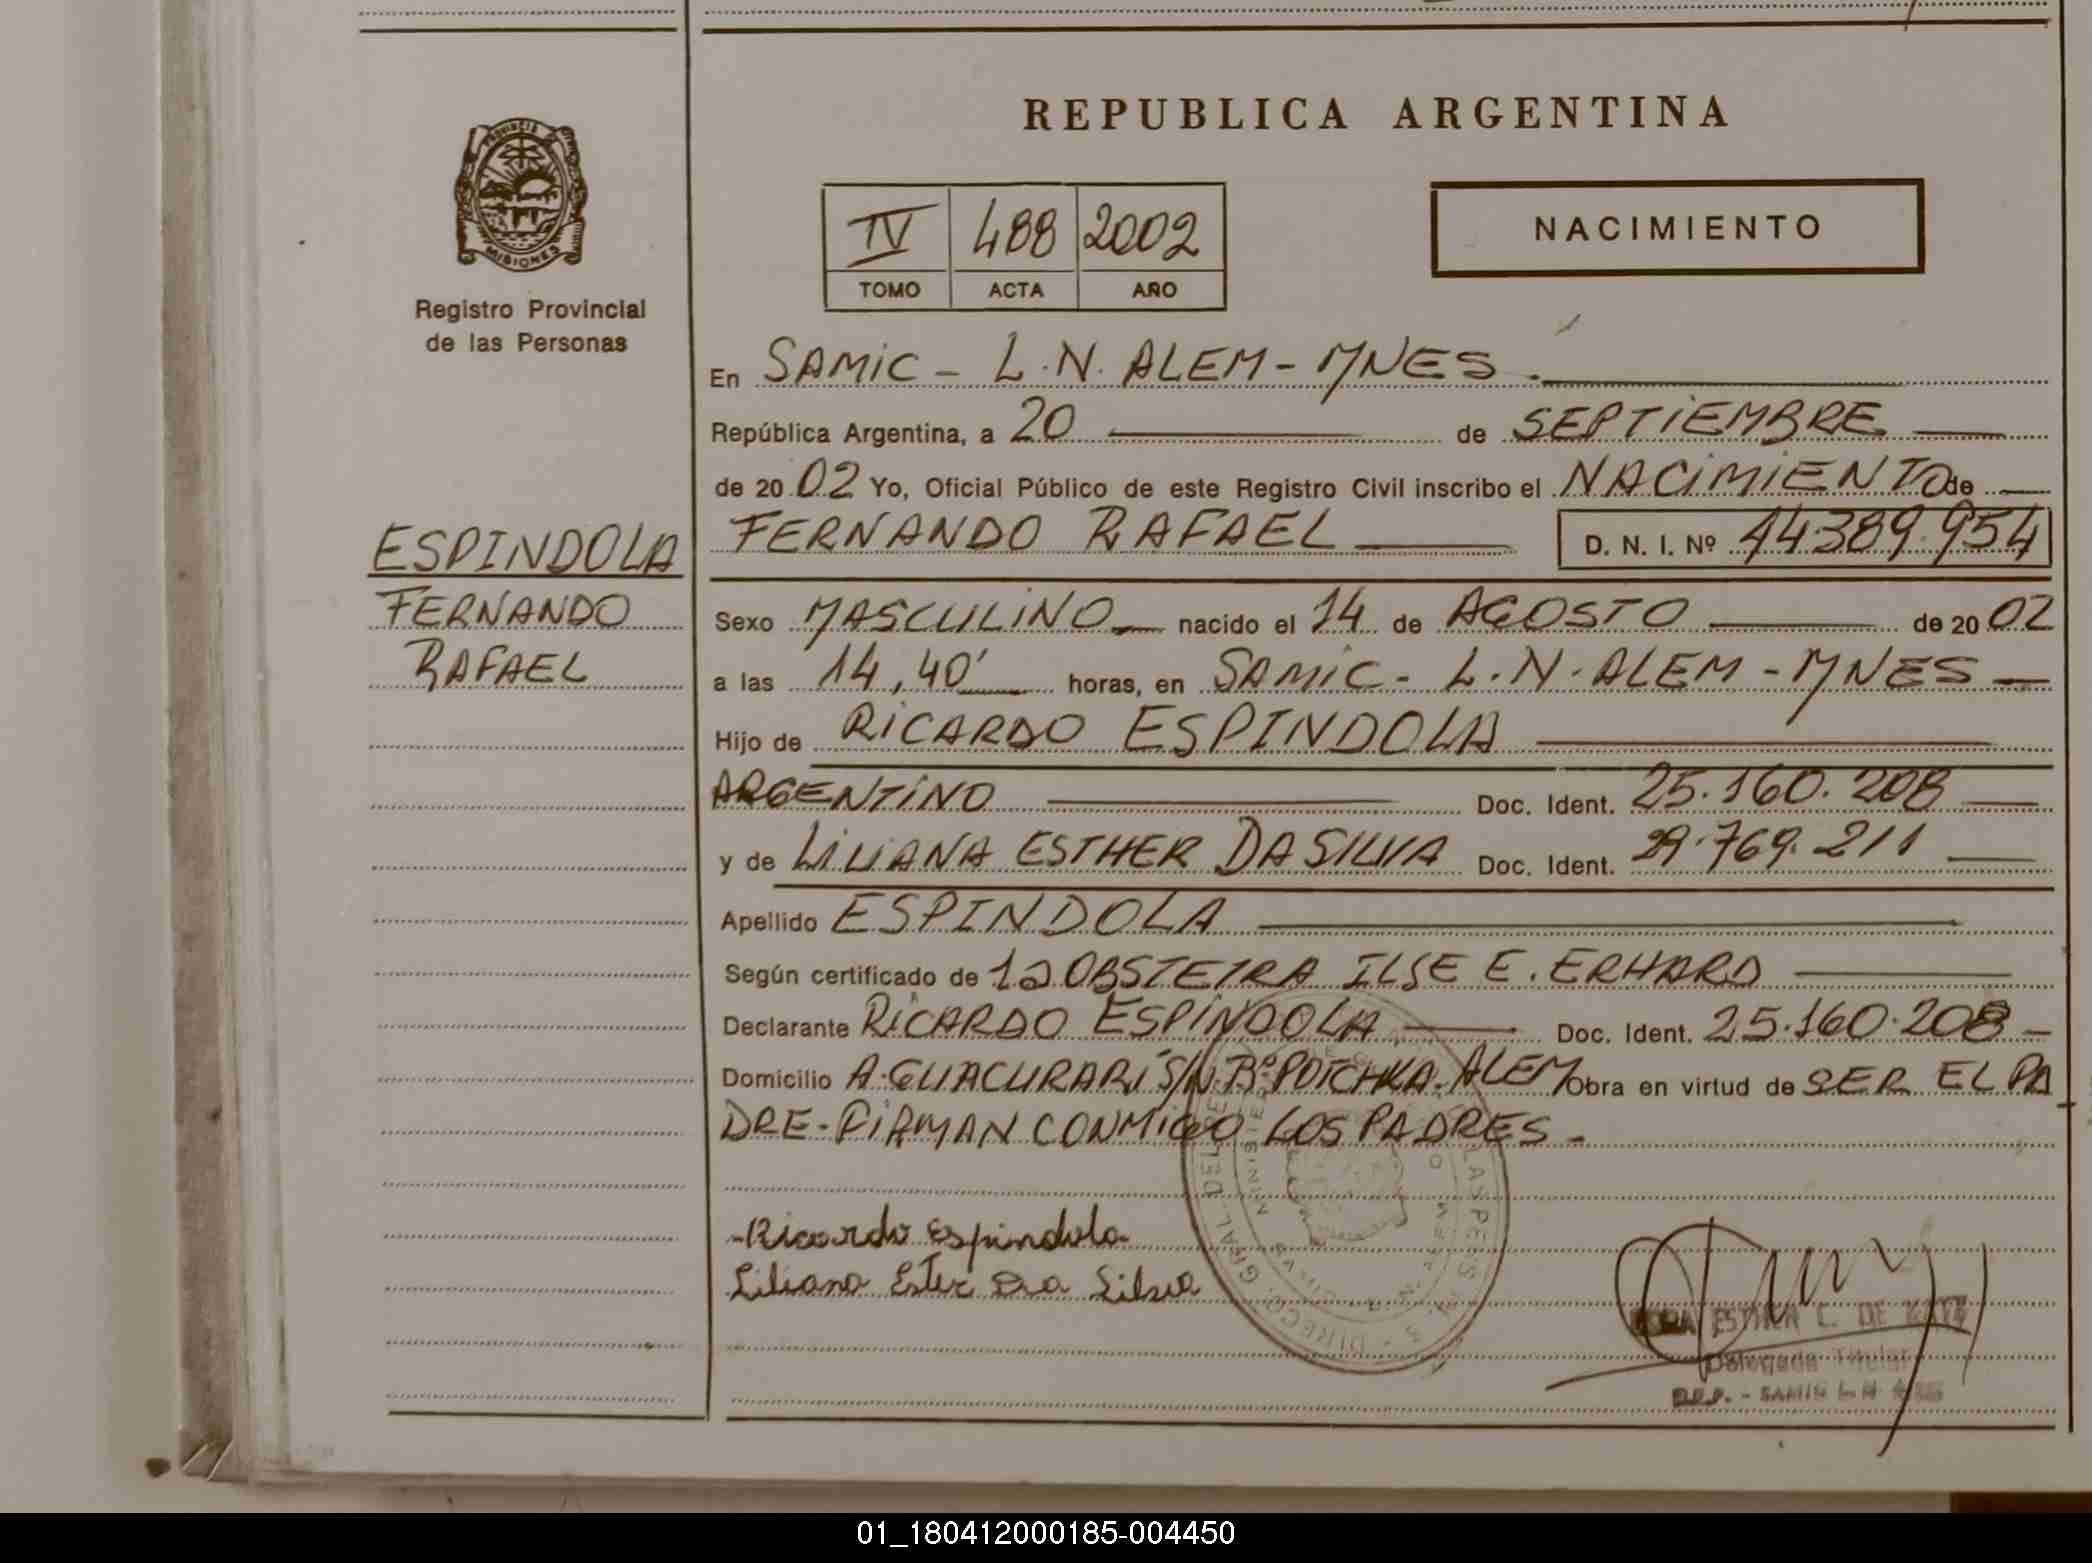 REPUBLICA ARGENTINA
PROVINCIA DE
MISIONES
Registro Provincial
de las Personas
IV 488 2002
TOMO ACTA AÑO
NACIMIENTO
En SAMIC - L.N. ALEM - MNES.
República Argentina, a 20 de SEPTIEMBRE
de 2002 Yo, Oficial Público de este Registro Civil inscribo el NACIMIENTO de
ESPINDOLA
FERNANDO
RAFAEL
FERNANDO RAFAEL D. N. I. Nº 44.389.954
Sexo MASCULINO nacido el 14 de AGOSTO de 2002
a las 14,40' horas, en SAMIC - L.N. ALEM - MNES
Hijo de RICARDO ESPINDOLA
ARGENTINO Doc. Ident. 25.160.208
y de LILIANA ESTHER DA SILVA Doc. Ident. 29.769.211
Apellido ESPINDOLA
Según certificado de la OBSTETRA ILSE E. ERHARD
Declarante RICARDO ESPINDOLA Doc. Ident. 25.160.208
Domicilio A. GUACURARI S/N Bº POTCHKA. ALEM Obra en virtud de SER EL PA
DRE - FIRMAN CONMIGO LOS PADRES.
Ricardo Espindola
Liliana Ester Da Silva
ESTHER L. DE
Delegada Titular
01_180412000185-004450